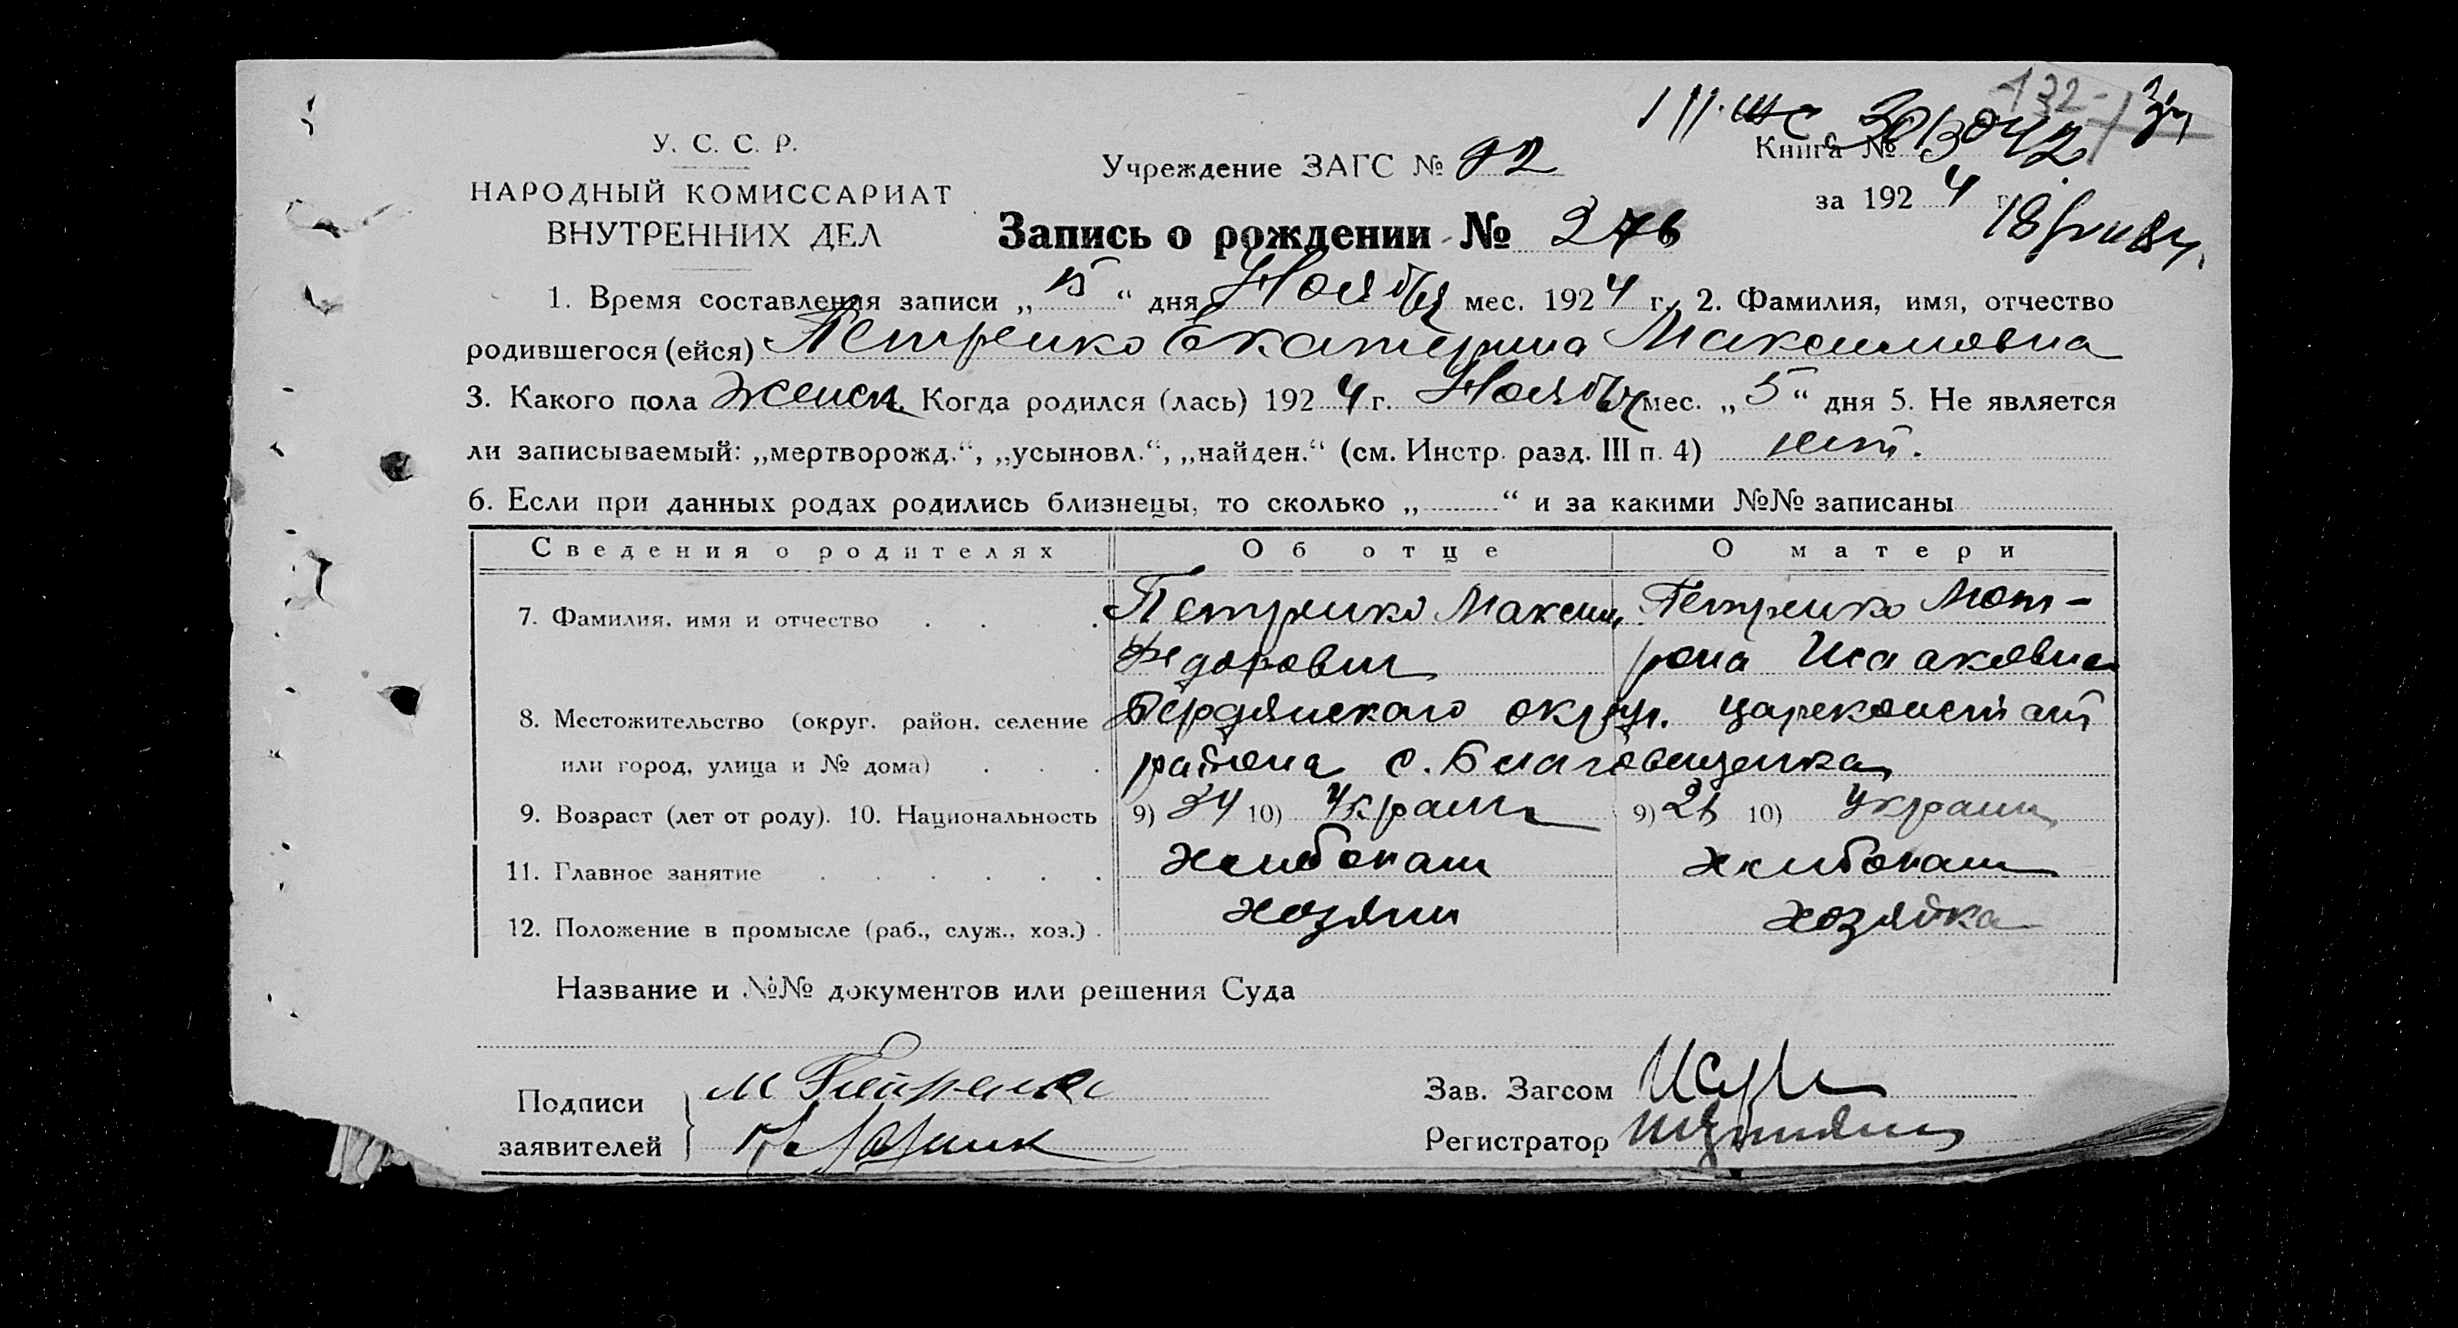 У. С. С. Р.
НАРОДНЫЙ КОМИССАРИАТ
ВНУТРЕННИХ ДЕЛ
Учреждение ЗАГС №
Книга №
за 1924 г.
Запись о рождении № 276
1. Время составления записи „15“ дня Ноября мес. 1924 г. 2. Фамилия, имя, отчество
родившегося (ейся) Петренко Екатерина Максимовна
3. Какого пола женск. Когда родился (лась) 1924 г. Ноября мес. „5“ дня 5. Не является
ли записываемый: „мертворожд.“, „усыновл.“, „найден.“ (см. Инстр. разд. III п. 4) нет.
6. Если при данных родах родились близнецы, то сколько „ “ и за какими №№ записаны
Сведения о родителях Об отце О матери
7. Фамилия, имя и отчество Петренко Максим Петренко Мот-
Федорович рона Исааковна
8. Местожительство (округ. район. селение Бердянского округ. Цареконстант
или город, улица и № дома) района с. Благовещенка
9. Возраст (лет от роду). 10. Национальность 9) 24 10) Украин 9) 26 10) Украин
11. Главное занятие хлибопаш хлибопаш
12. Положение в промысле (раб., служ., хоз.) хозяин хозяйка
Название и №№ документов или решения Суда
Подписи М Петренко
заявителей
Зав. Загсом
Регистратор